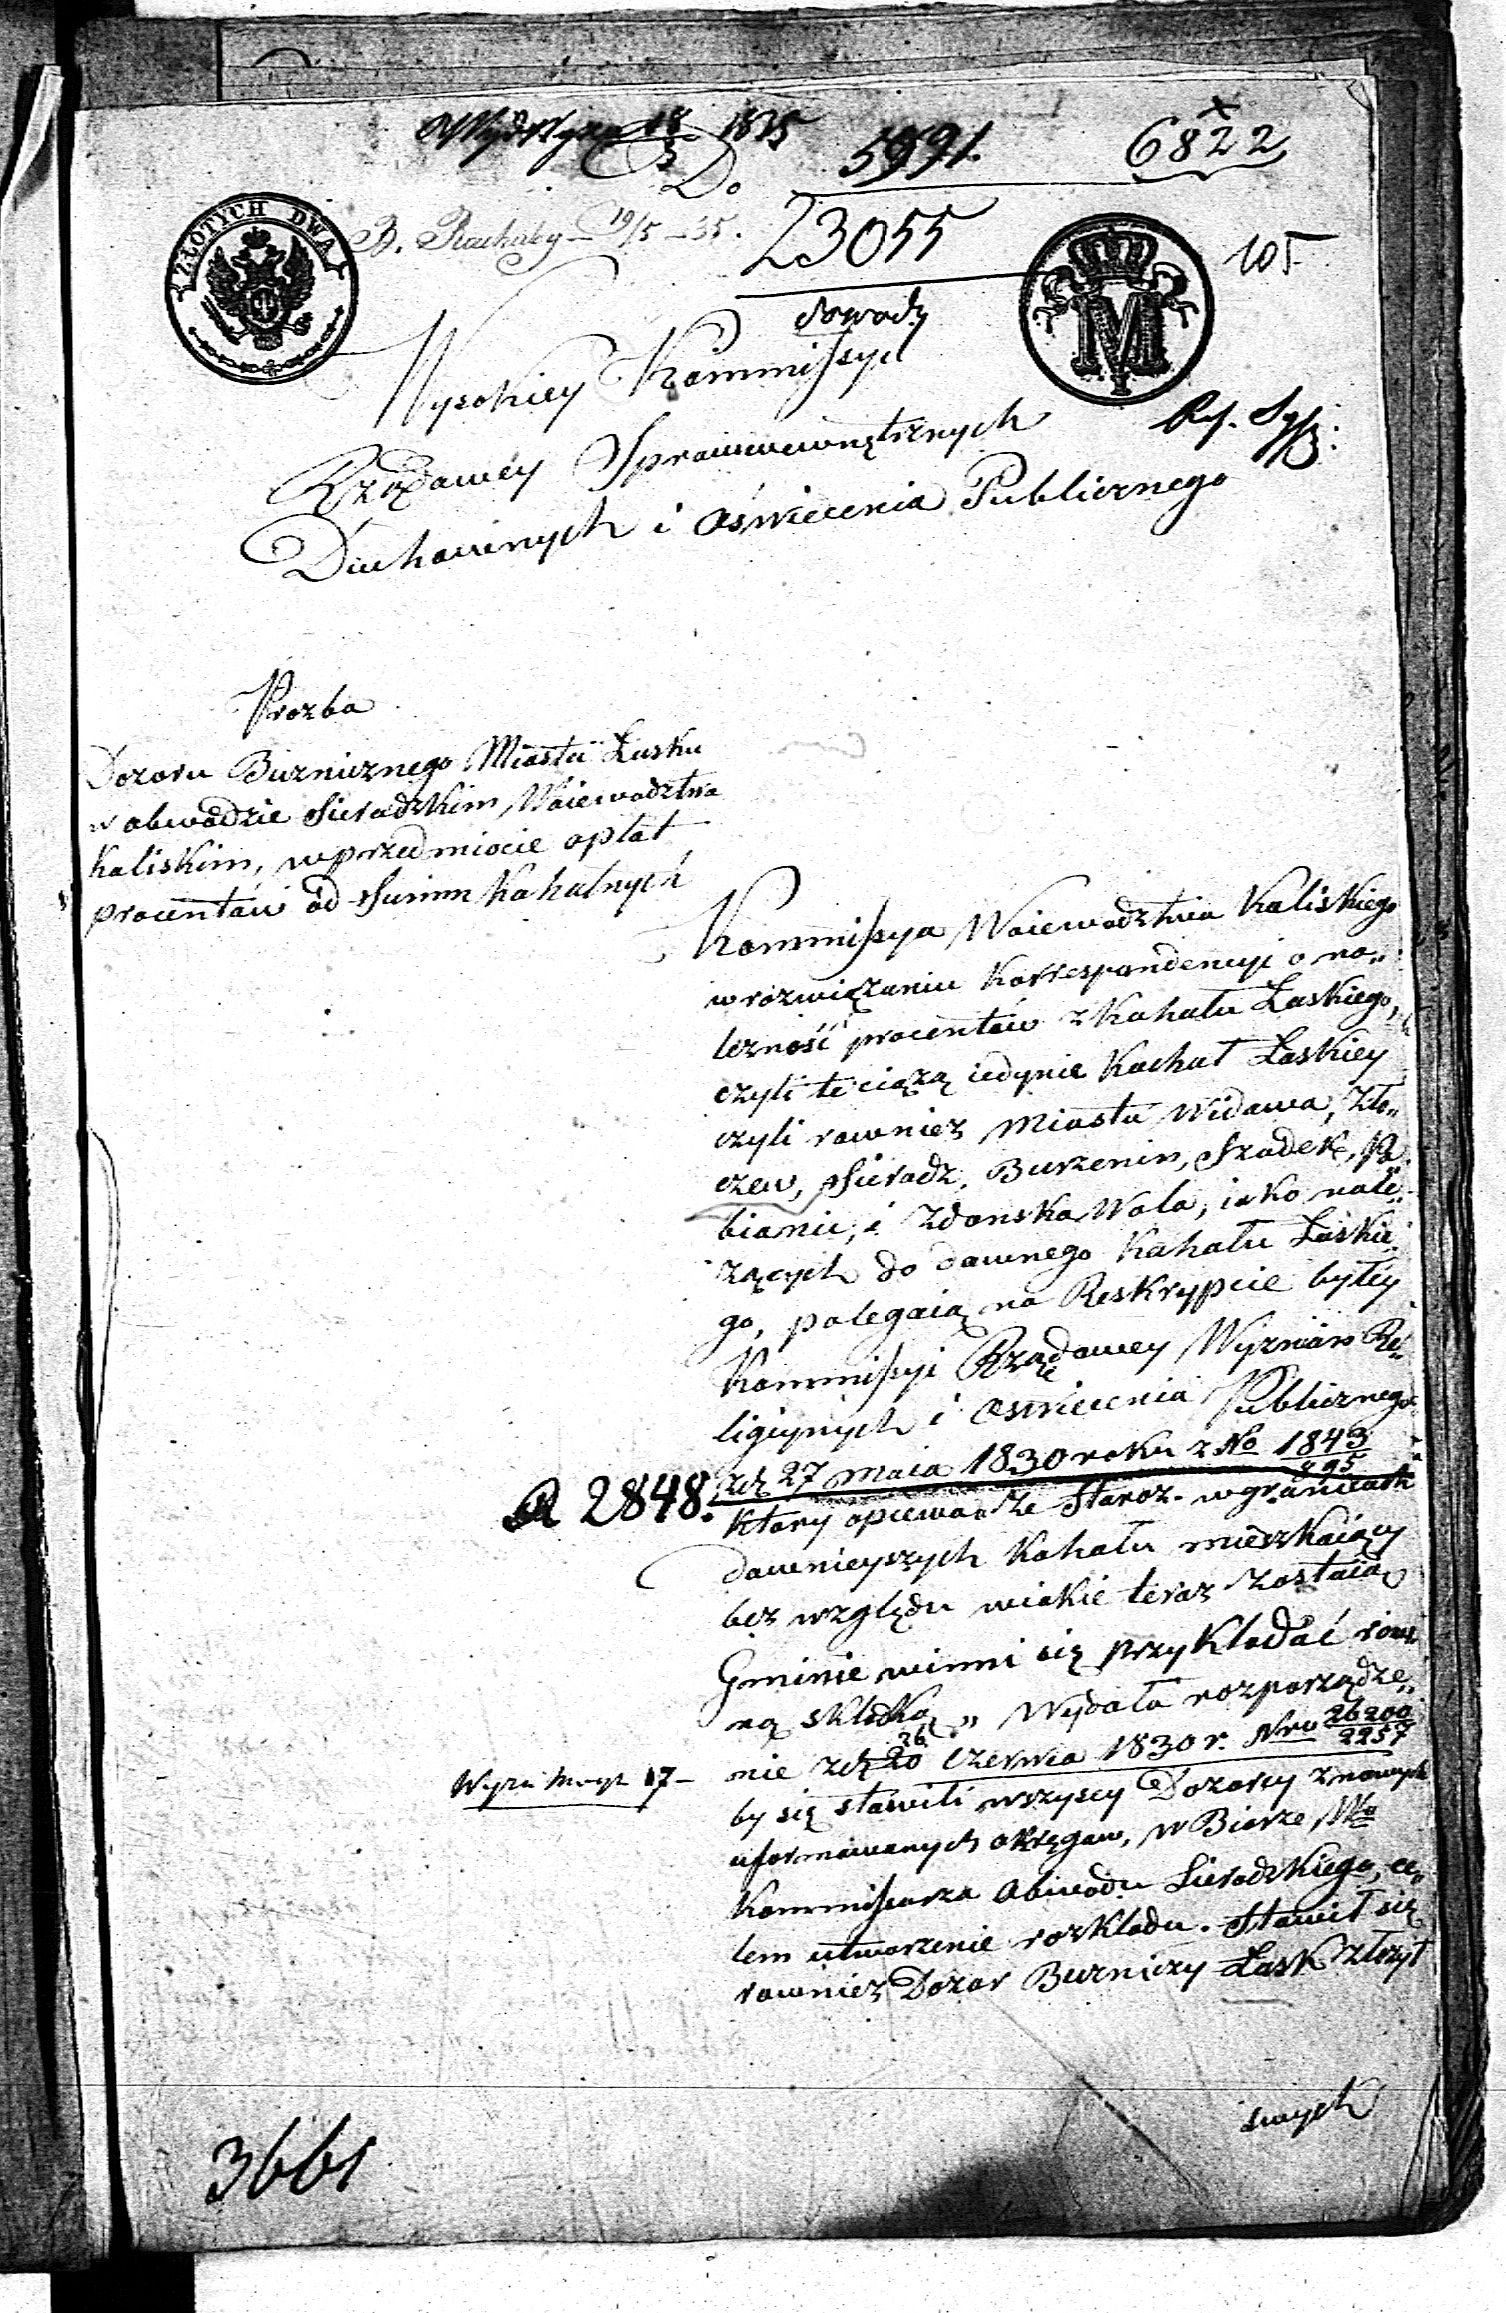 1835
Do
5991.
6822
B. Rachuby 19/5 - 35.
23055
dowody
105
ZŁOTYCH DWA
M
Wysokiey Kommissyi
Rządowéy Spraw wewnętrznych
Duchownych i Oświecenia Publicznego
Prozba
Dozoru Buzniznego Miasta Łasku
w obwodzie Sieradzkim, Woiewodztwa
Kaliskim, w przedmiocie opłat
procentów od Summ Kahalnych
Kommissya Woiewodztwa Kaliskiego
w rozwiązaniu Korrespondencyi o na„
leżność procentów z Kahału Łaskiego,
czyli te ciążą iedynie Kachał Łaskiey
czyli rownież Miasta Widawa, Zło„
czew, Sieradz, Burzenin, Szadek, Pa„
bianic, i Zdonska Wola, iako nale„
żących do dawnego Kahału Łaskie„
go, polegaiąc na Reskrypcie byłéy
Kommissyi Rządowey Wyznań Re„
ligiynych i Oswiecenia Publicznego
zd 27 maia 1830 roku z No 1843/895
A 2848.
ktory opiewa że Staroz. w granicach
dawnieyszych Kahału mieszkaiący
bez względu wiakié teraz zostaią
Gminie winni się przykładać rów„
ną składką „ Wydała rozporządze„
nie zd 26 20 Czerwca 1830 r. Nro 26200/2257
17 -
by się stawili wszyscy Dozorcy z nowych
uformowanych okręgow, w Biorze Wo
Kommissarza Obwodu Sieradzkiego, ce„
lem utworzenie rozkładu. Stawił się
rownież Dozor Buzniczy Łask złożył
swych
3661